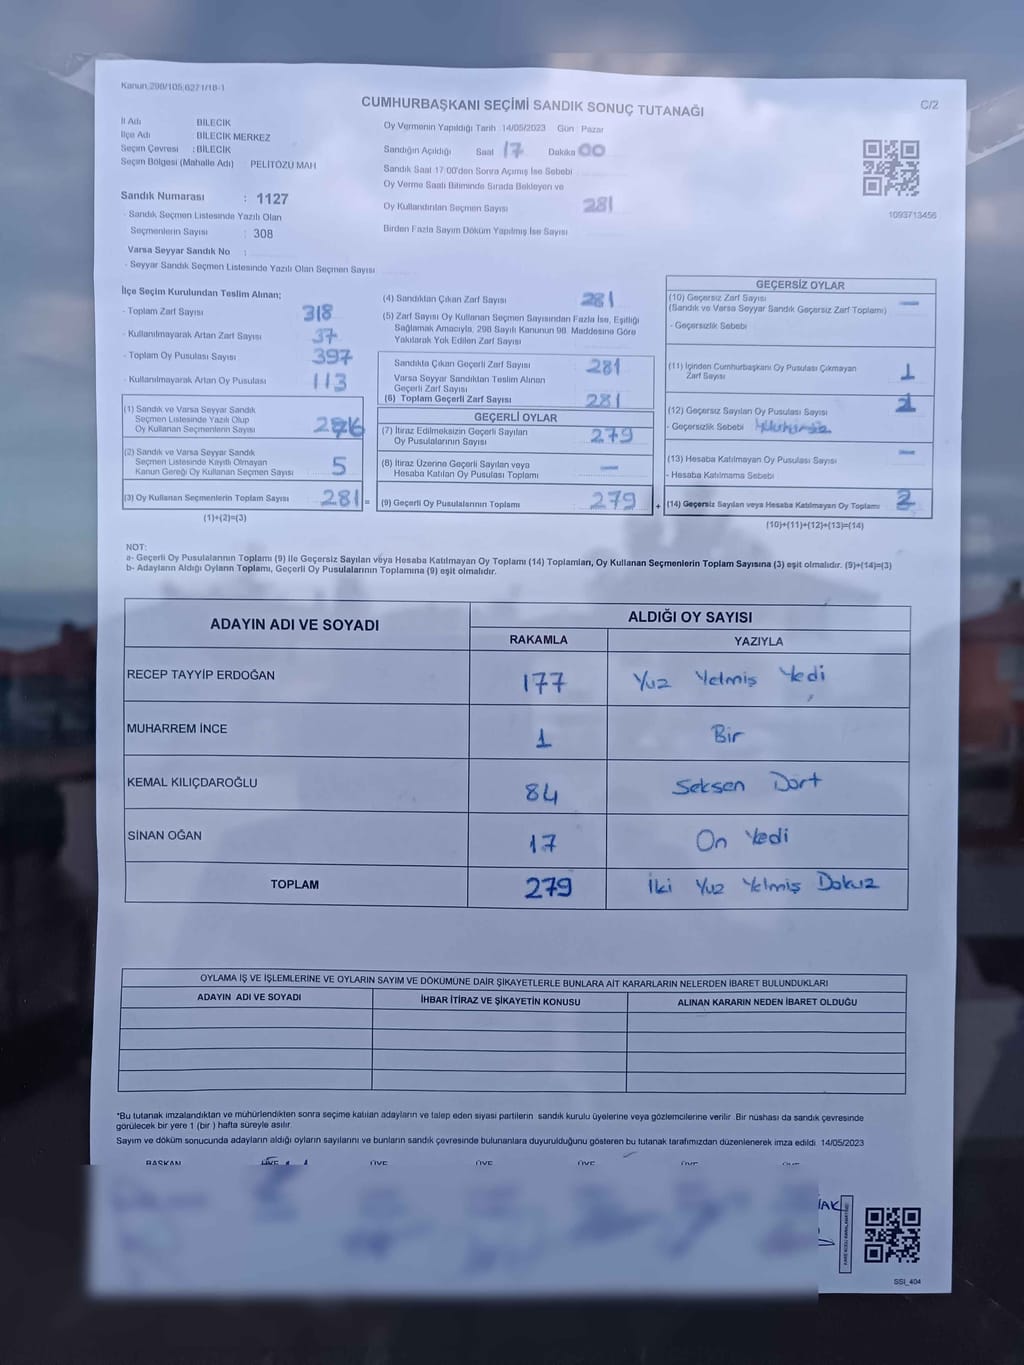 Kanun:298/105,6271/18-1
CUMHURBAŞKANI SEÇİMİ SANDIK SONUÇ TUTANAĞI
C/2
İl Adı BİLECİK
İlçe Adı : BİLECİK MERKEZ
Seçim Çevresi : BİLECİK
Seçim Bölgesi (Mahalle Adı) PELİTÖZÜ MAH
Sandık Numarası : 1127
- Sandık Seçmen Listesinde Yazılı Olan
Seçmenlerin Sayısı : 308
Varsa Seyyar Sandık No :
- Seyyar Sandık Seçmen Listesinde Yazılı Olan Seçmen Sayısı
Oy Vermenin Yapıldığı Tarih 14/05/2023 Gün Pazar
Sandığın Açıldığı Saat 17 Dakika 00
Sandık Saat 17:00'den Sonra Açımış İse Sebebi
Oy Verme Saati Bitiminde Sırada Bekleyen ve
Oy Kullandırılan Seçmen Sayısı 281
Birden Fazla Sayım Döküm Yapılmış İse Sayısı
1093713456
İlçe Seçim Kurulundan Teslim Alınan;
- Toplam Zarf Sayısı 318
- Kullanılmayarak Artan Zarf Sayısı 37
- Toplam Oy Pusulası Sayısı 397
- Kullanılmayarak Artan Oy Pusulası 113
(1) Sandık ve Varsa Seyyar Sandık
Seçmen Listesinde Yazılı Olup
Oy Kullanan Seçmenlerin Sayısı
(2) Sandık ve Varsa Seyyar Sandık
Seçmen Listesinde Kayıtlı Olmayan
Kanun Gereği Oy Kullanan Seçmen Sayısı 5
(3) Oy Kullanan Seçmenlerin Toplam Sayısı 281 =
(1)+(2)=(3)
(4) Sandıktan Çıkan Zarf Sayısı 281
(5) Zarf Sayısı Oy Kullanan Seçmen Sayısından Fazla İse, Eşitliği
Sağlamak Amacıyla, 298 Sayılı Kanunun 98. Maddesine Göre
Yakılarak Yok Edilen Zarf Sayısı
Sandıkta Çıkan Geçerli Zarf Sayısı 281
Varsa Seyyar Sandıktan Teslim Alınan
Geçerli Zarf Sayısı
(6) Toplam Geçerli Zarf Sayısı 281
GEÇERLİ OYLAR
(7) İtiraz Edilmeksizin Geçerli Sayılan
Oy Pusulalarının Sayısı 279
(8) İtiraz Üzerine Geçerli Sayılan veya
Hesaba Katılan Oy Pusulası Toplamı —
(9) Geçerli Oy Pusulalarının Toplamı 279 +
GEÇERSİZ OYLAR
(10) Geçersiz Zarf Sayısı —
(Sandık ve Varsa Seyyar Sandık Geçersiz Zarf Toplamı)
- Geçersizlik Sebebi
(11) İçinden Cumhurbaşkanı Oy Pusulası Çıkmayan
Zarf Sayısı 1
(12) Geçersiz Sayılan Oy Pusulası Sayısı 1
- Geçersizlik Sebebi
(13) Hesaba Katılmayan Oy Pusulası Sayısı —
- Hesaba Katılmama Sebebi
(14) Geçersiz Sayılan veya Hesaba Katılmayan Oy Toplamı 2
(10)+(11)+(12)+(13)=(14)
NOT:
a- Geçerli Oy Pusulalarının Toplamı (9) İle Geçersiz Sayılan veya Hesaba Katılmayan Oy Toplamı (14) Toplamları, Oy Kullanan Seçmenlerin Toplam Sayısına (3) eşit olmalıdır. (9)+(14)=(3)
b- Adayların Aldığı Oyların Toplamı, Geçerli Oy Pusulalarının Toplamına (9) eşit olmalıdır.
ADAYIN ADI VE SOYADI ALDIĞI OY SAYISI
RAKAMLA YAZIYLA
RECEP TAYYİP ERDOĞAN 177 Yuz Yetmiş Yedi
MUHARREM İNCE 1 Bir
KEMAL KILIÇDAROĞLU 84 Seksen Dört
SİNAN OĞAN 17 On Yedi
TOPLAM 279 İki Yuz Yetmiş Dokuz
OYLAMA İŞ VE İŞLEMLERİNE VE OYLARIN SAYIM VE DÖKÜMÜNE DAİR ŞİKAYETLERLE BUNLARA AİT KARARLARIN NELERDEN İBARET BULUNDUKLARI
ADAYIN ADI VE SOYADI İHBAR İTİRAZ VE ŞİKAYETİN KONUSU ALINAN KARARIN NEDEN İBARET OLDUĞU
*Bu tutanak imzalandıktan ve mühürlendikten sonra seçime katılan adayların ve talep eden siyasi partilerin sandık kurulu üyelerine veya gözlemcilerine verilir. Bir nüshası da sandık çevresinde
görülecek bir yere 1 (bir) hafta süreyle asılır.
Sayım ve döküm sonucunda adayların aldığı oyların sayılarını ve bunların sandık çevresinde bulunanlara duyurulduğunu gösteren bu tutanak tarafımızdan düzenlenerek imza edildi 14/05/2023
BAŞKAN ÜYE ÜYE ÜYE ÜYE ÜYE
SSI_404